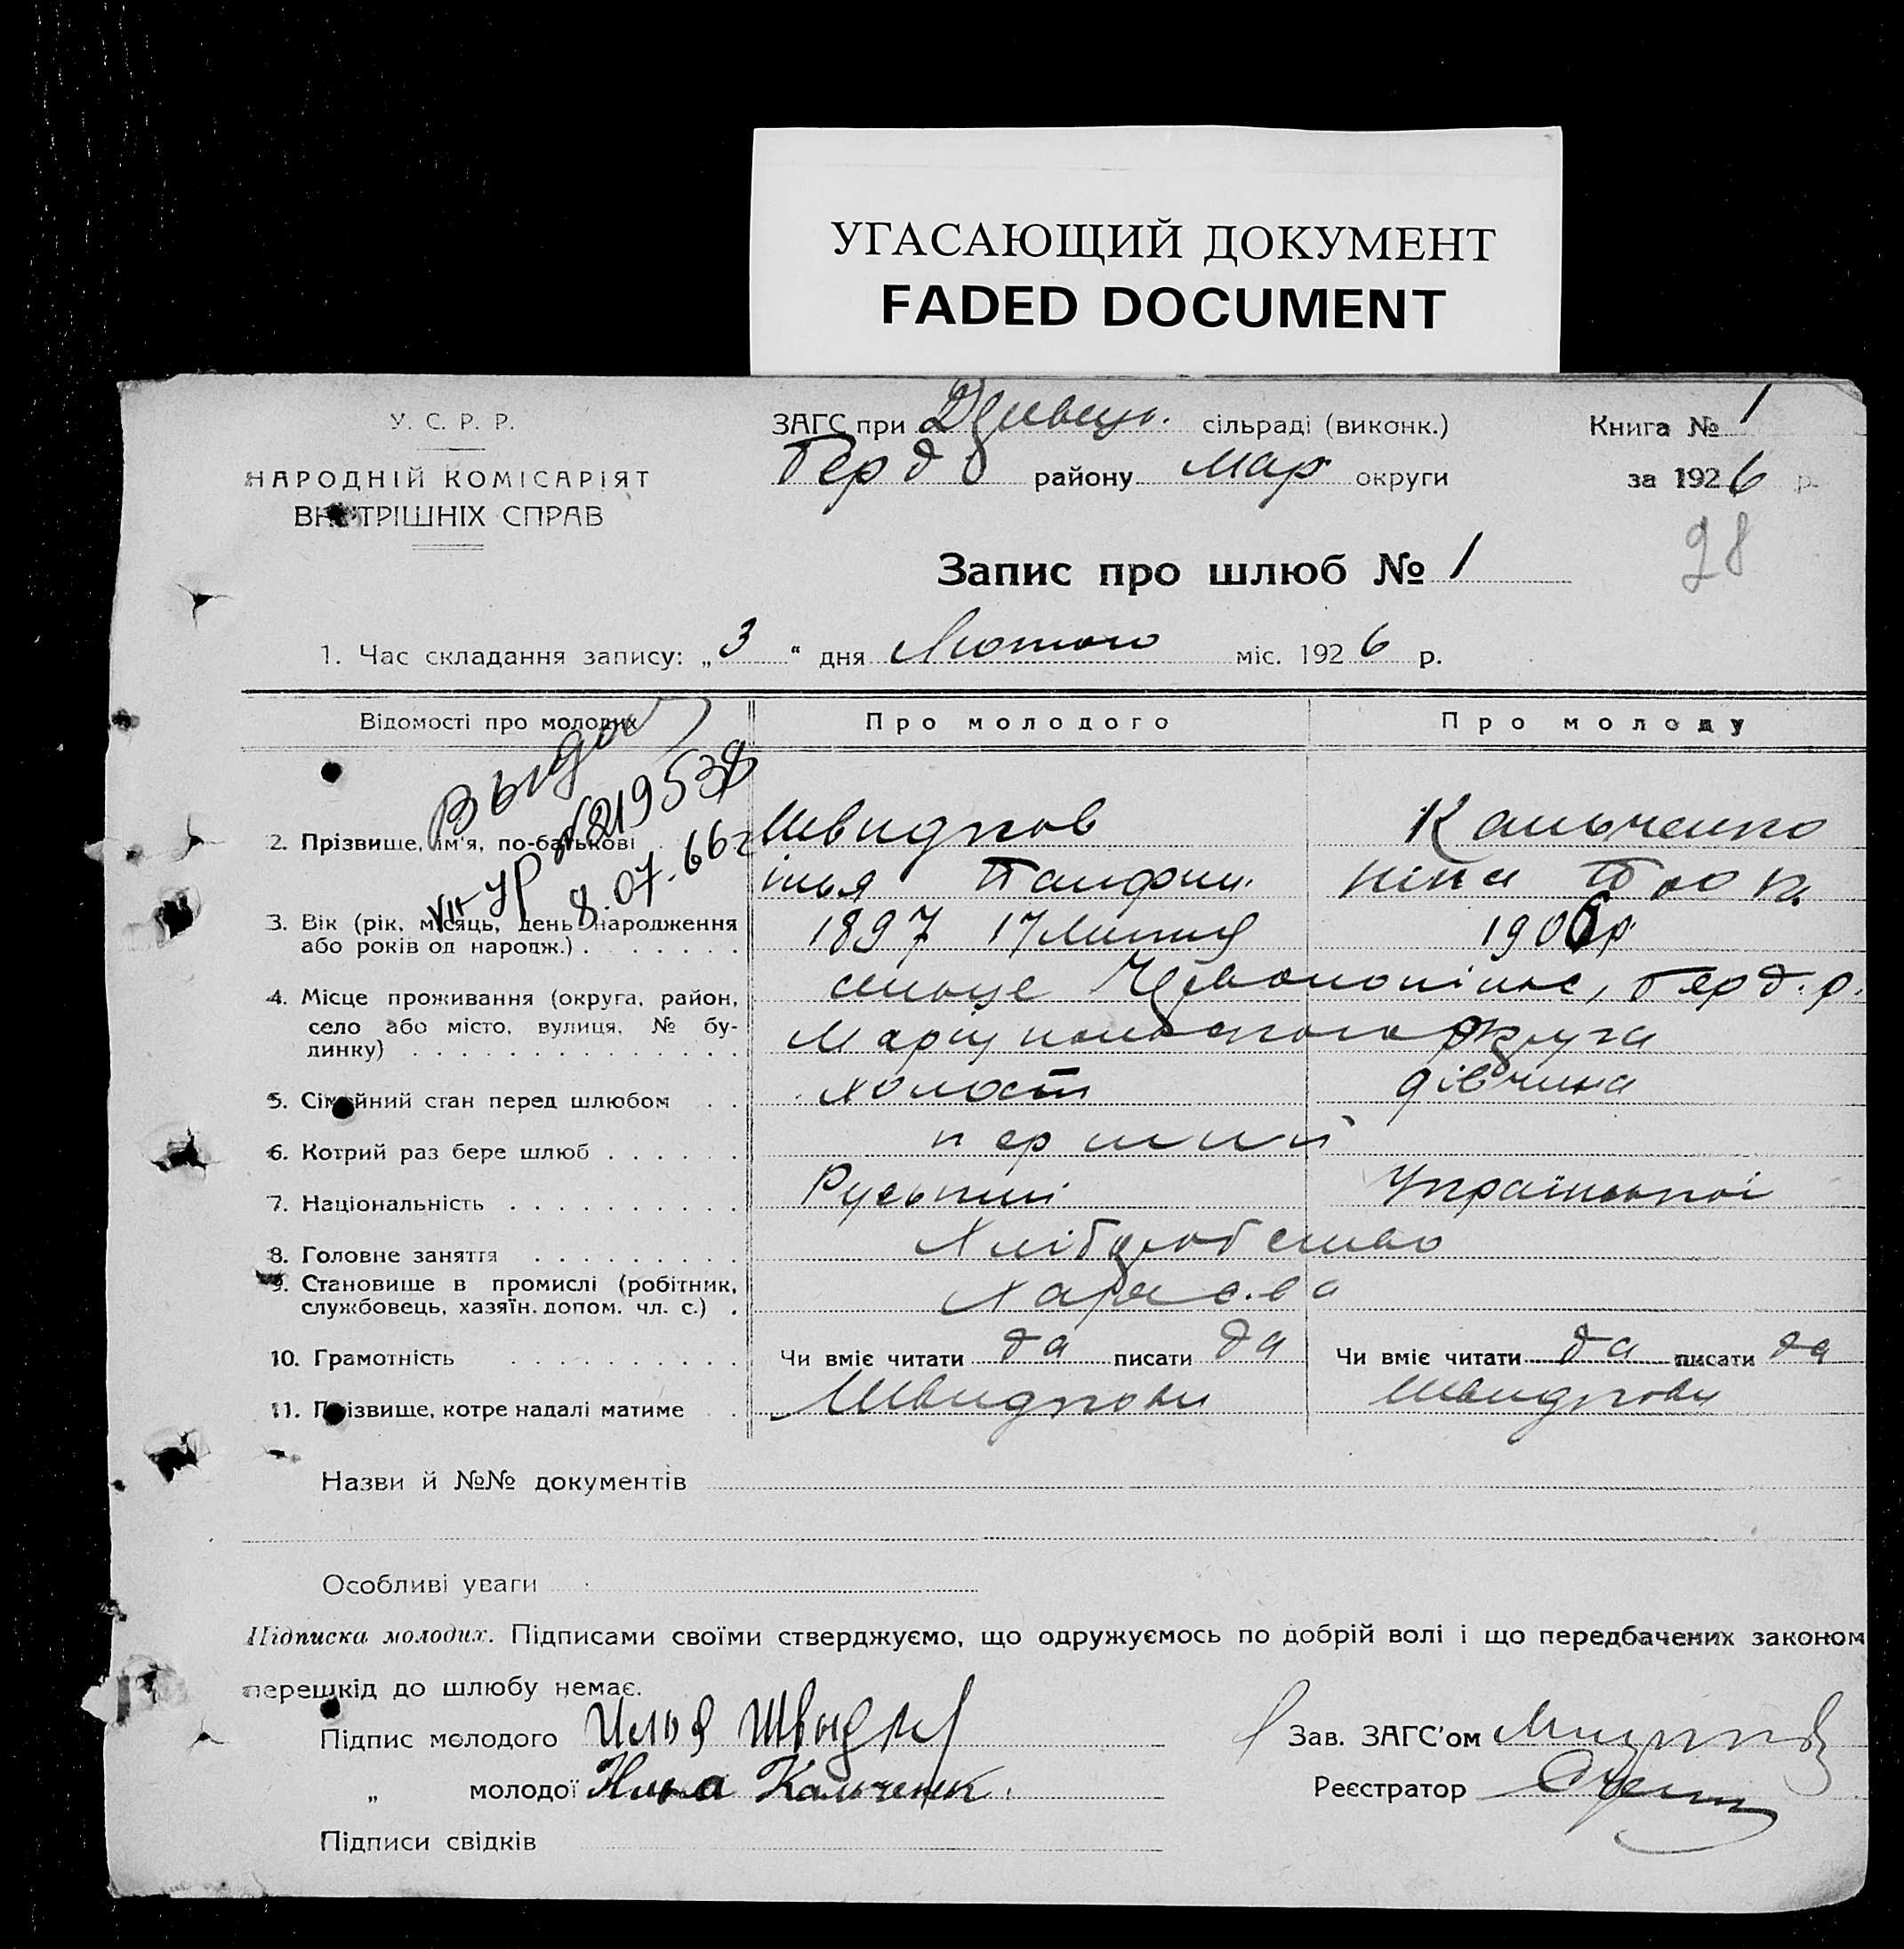 УГАСАЮЩИЙ ДОКУМЕНТ
FADED DOCUMENT
У. С. Р. Р.
НАРОДНІЙ КОМІСАРІЯТ
ВНУТРІШНІХ СПРАВ
ЗАГС при сільраді (виконк.)
Берд району Мар округи
Книга № 1
за 1926 р.
98
Запис про шлюб № 1
1. Час складання запису: „3“ дня Лютого міс. 1926 р.
Відомості про молодих
Про молодого
Про молоду
Выдан
№219538
8.07.66г
2. Прізвище, ім'я, по-батькові
Швидков
Кальченко
ілья Панфил.
Ніна
3. Вік (рік, місяць, день народження
або років од народж.)
1897 17 Липня
1906р
4. Місце проживання (округа, район,
село або місто, вулиця, № бу-
динку)
Червонопільс, Берд. р.
Маріупольского округа
5. Сімейний стан перед шлюбом
холост
дівчина
6. Котрий раз бере шлюб
перший
7. Національність
Руський
Української
8. Головне заняття
Хліборобство
9. Становище в промислі (робітник,
службовець, хазяїн. допом. чл. с.)
10. Грамотність
Чи вміє читати да писати да
Чи вміє читати да писати да
11. Прізвище, котре надалі матиме
Швидкови
Швидкови
Назви й №№ документів
Особливі уваги
Підписка молодих. Підписами своїми стверджуємо, що одружуємось по добрій волі і що передбачених законом
перешкід до шлюбу немає.
Підпис молодого Илья Швыдк
Зав. ЗАГС'ом
„ молодої Нина Кальченк.
Реєстратор
Підписи свідків